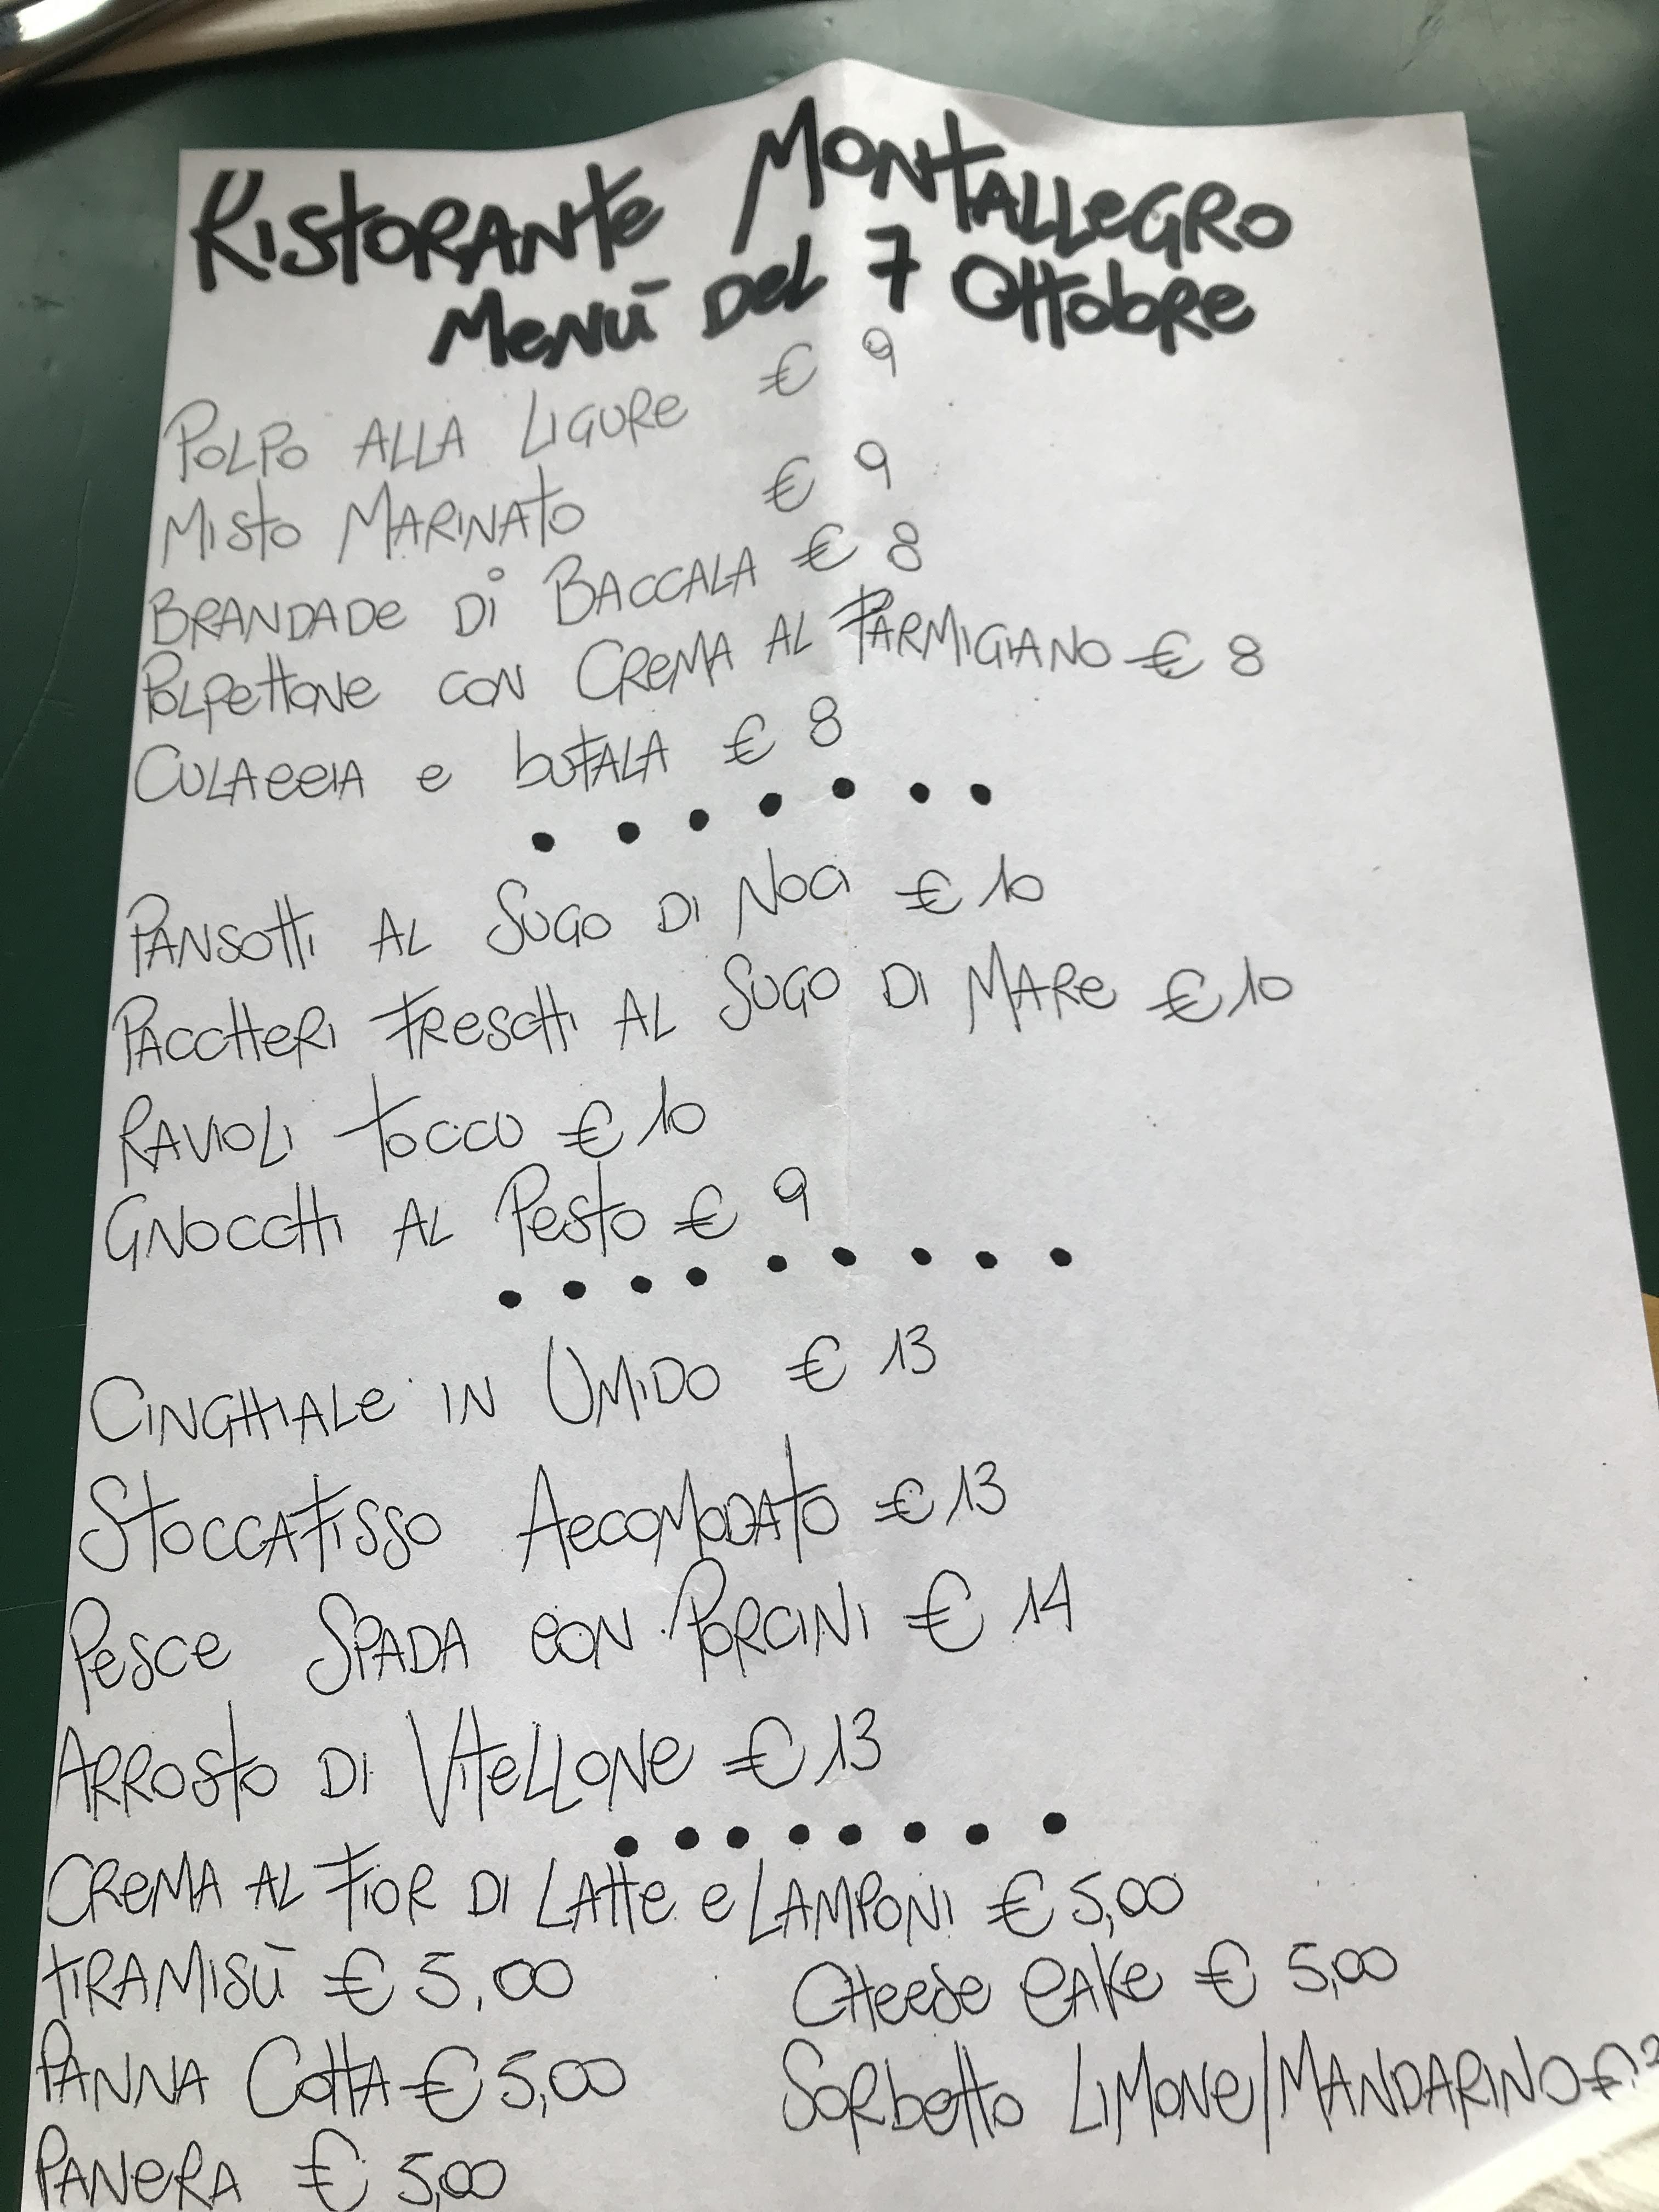 Ristorante Montallegro
Menù del 7 Ottobre
Polpo alla Ligure € 9
Misto Marinato € 9
Brandade di Baccala € 8
Polpettone con Crema al Parmigiano € 8
Culaccia e bufala € 8
Pansotti al Sugo di Noci € 10
Paccheri Freschi al Sugo di Mare € 10
Ravioli tocco € 10
Gnocchi al Pesto € 9
Cinghiale in Umido € 13
Stoccafisso Accomodato € 13
Pesce Spada con Porcini € 14
Arrosto di Vitellone € 13
Crema al Fior di Latte e Lamponi € 5,00
Tiramisù € 5,00
Cheese cake € 5,00
Panna Cotta € 5,00
Sorbetto Limone/Mandarino €
Panera € 5,00